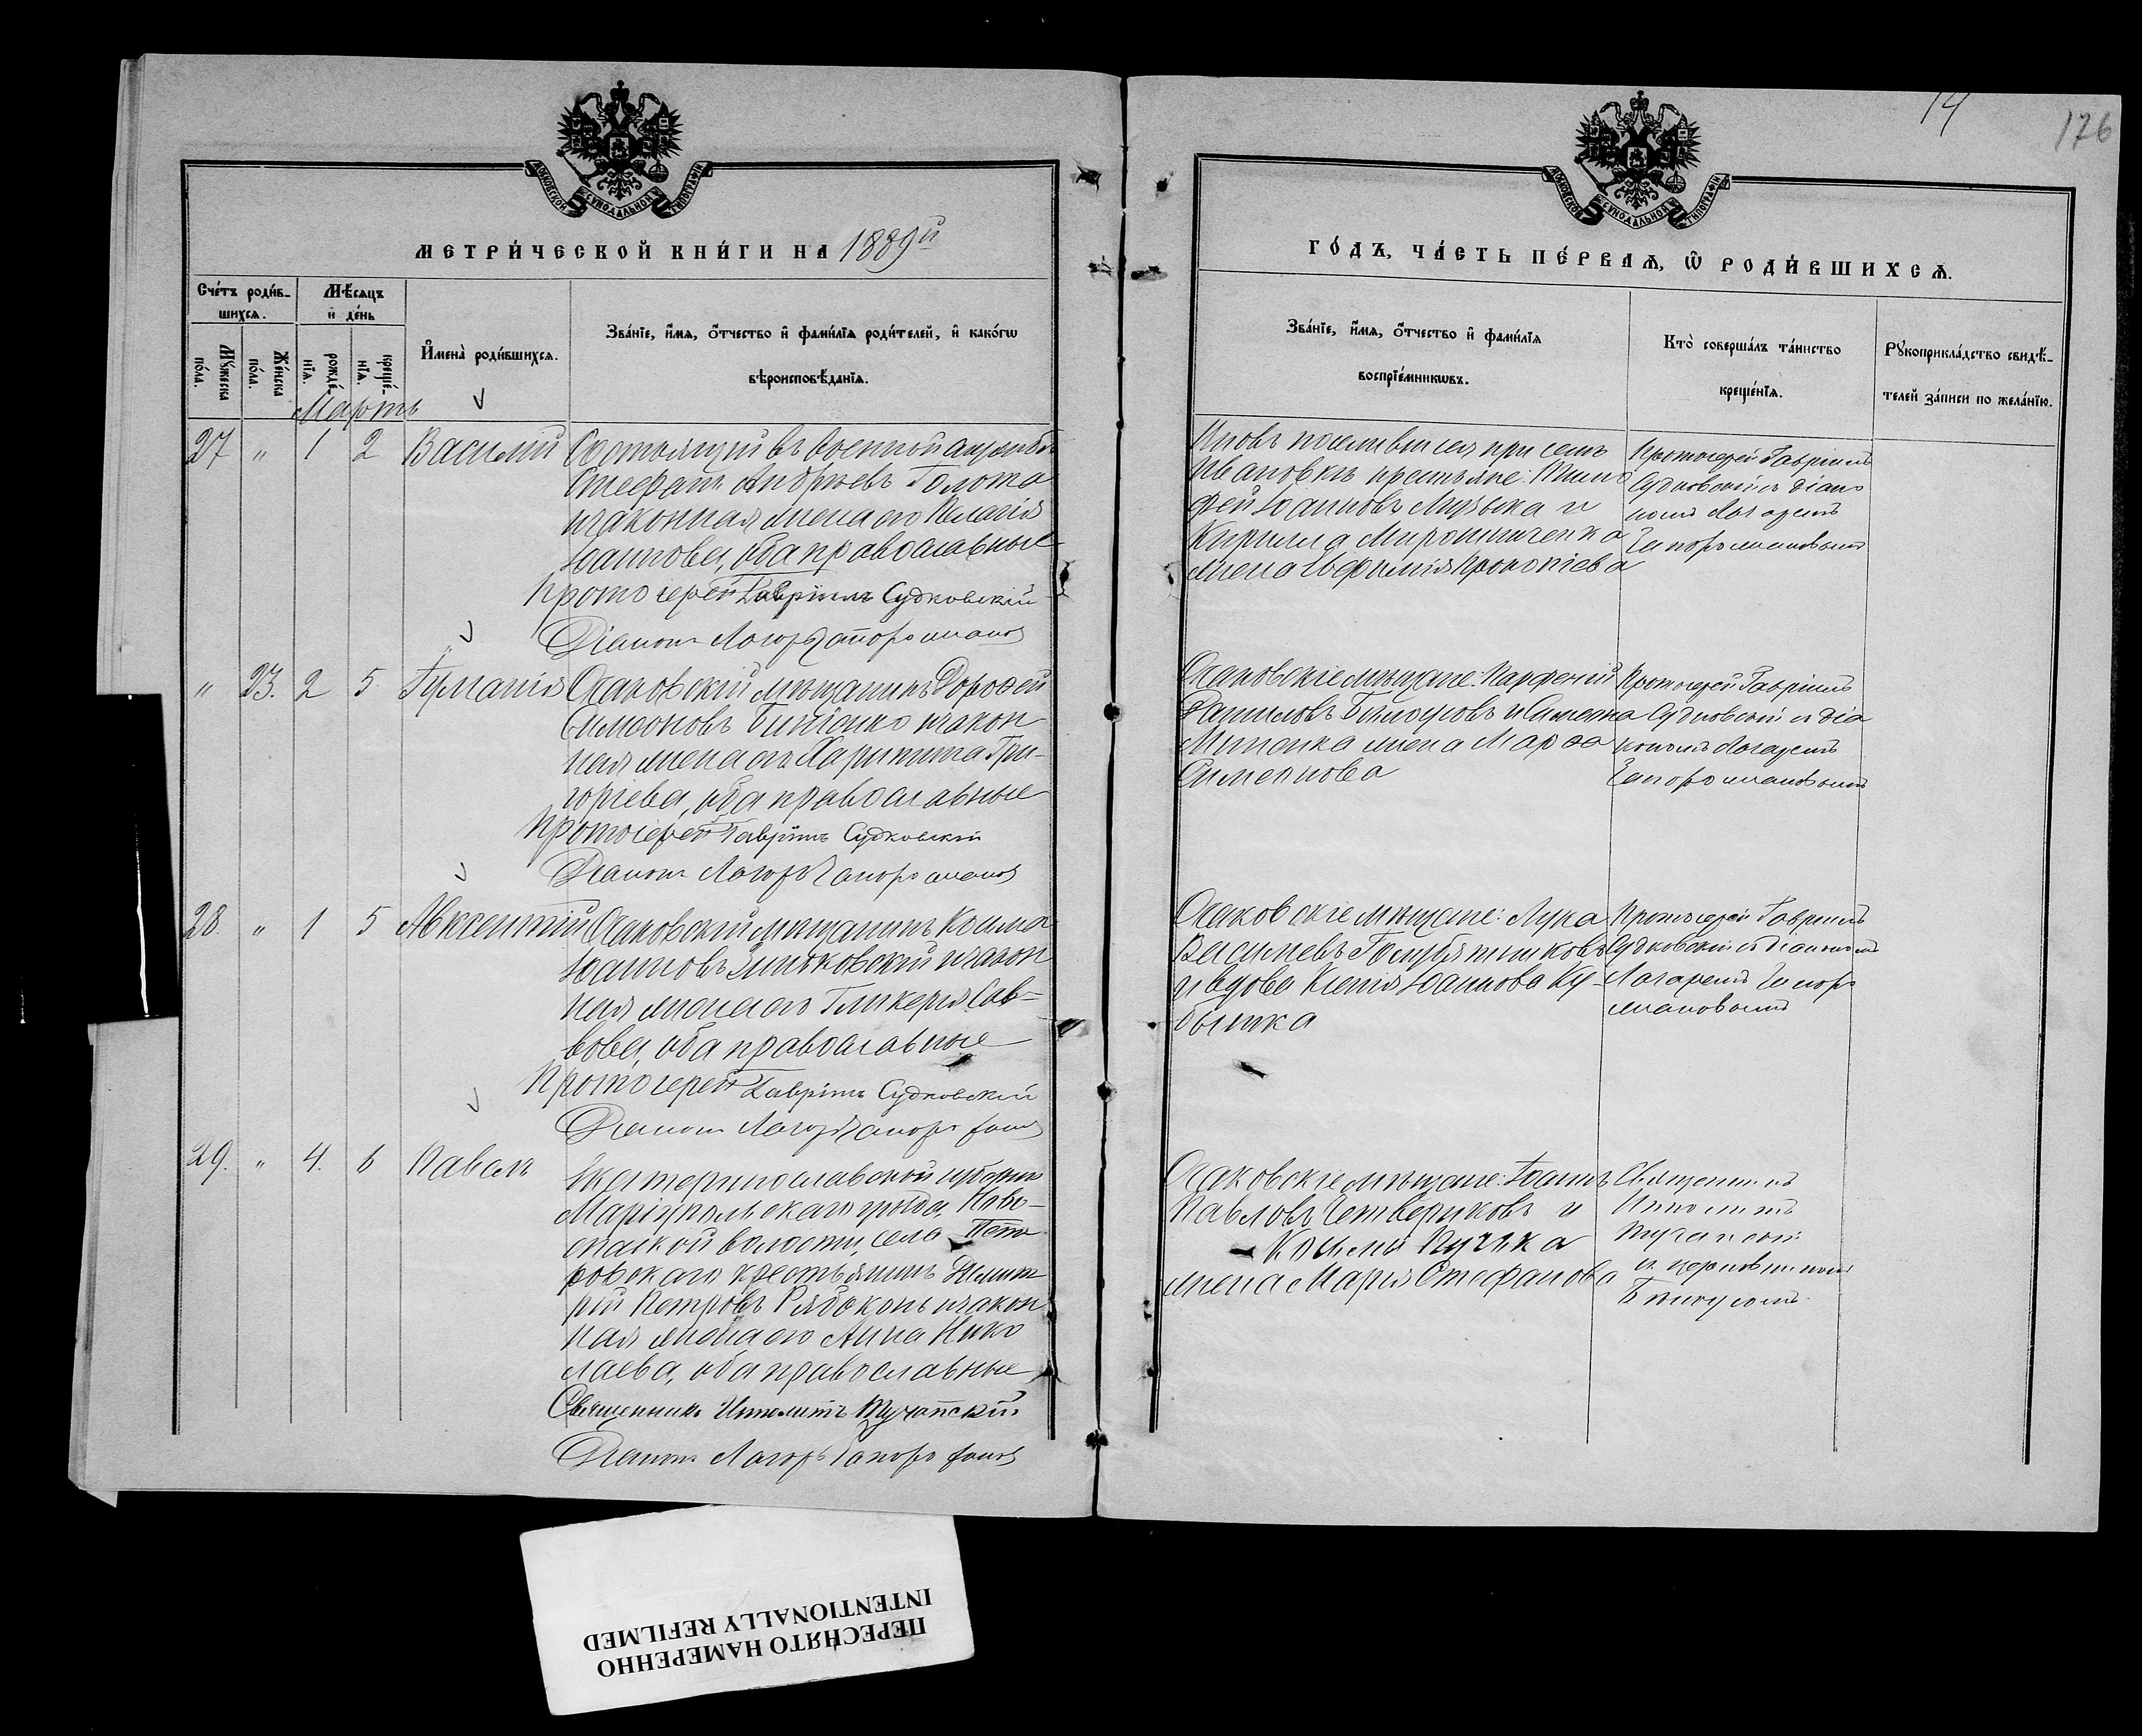 14
176
МОСКОВСКОЙ СѴНОДАЛЬНОЙ ТИПОГРАФІИ
МОСКОВСКОЙ СѴНОДАЛЬНОЙ ТИПОГРАФІИ
МЕТРИ́ЧЕСКОЙ КНИ́ГИ НА 1889й
ГО́ДЪ, ЧА́СТЬ ПЕ́РВАѦ, Ѡ РОДИ́ВШИХСѦ.
Сче́тъ роди́в-
шихсѧ.
Мѣсѧцъ
и де́нь
Мꙋжеска
по́ла.
Же́нска
по́ла.
рожде́-
нїѧ.
креще́-
нїѧ.
Имена̀ роди́вшихсѧ.
Зва́нїе, и́мѧ, о́тчество и фами́лїѧ роди́телей, и како́гѡ
вѣроисповѣ́данїѧ.
Зва́нїе, и́мѧ, о́тчество и фами́лїѧ
воспрїе́мникѡвъ.
Кто̀ соверша́лъ та́инство
креще́нїѧ.
Рꙋкоприкла́дство свидѣ́-
телей за́писи по жела́нїю.
Мартъ
27 " 1 2 Василий
Состоящий въ военной службѣ
Стефанъ Андреевъ Голота
и законная жена его Пелагія
Іоаннова, оба православные
Протоіерей Гавріилъ Судковскій
Діаконъ Лазарь Запорожановъ
Вновь поселившіеся при селѣ
Ивановкѣ крестьяне: Тимо
фей Іоанновъ Музыка и
Кирилла Мирошниченка
жена Евфимія Прокопіева
Протоіерей Гавріилъ
Судковскій съ діако
номъ Лазаремъ
Запорожановымъ
" 23. 2 5
Очаковскій мѣщанинъ Дорофей
Симеоновъ и закон
ная жена его Харитина Гри-
горіева, оба православные
Протоіерей Гавріилъ Судковскій
Діаконъ Лазарь Запорожановъ
Очаковскіе мѣщане: Парфеній
Даниловъ Бѣлоусовъ и Симеона
Миненка жена Марфа
Симеонова
Протоіерей Гавріилъ
Судковскій съ діа
кономъ Лазаремъ
Запорожановымъ
28. " 1 5 Авксентій
Очаковскій мѣщанинъ Косма
Іоанновъ Зиньковскій и закон
ная жена его Гликерія Сав-
вова, оба православные
Протоіерей Гавріилъ Судковскій
Діаконъ Лазарь Запорожановъ
Очаковскіе мѣщане: Лука
Васильевъ Голубятниковъ
и вдова Ксенія Іоаннова Ку-
бышка
Протоіерей Гавріилъ
Судковскій съ діакономъ
Лазаремъ Запоро
жановымъ
29. " 4. 6 Павелъ
Екатеринославской губерніи
Маріупольскаго уѣзда, Ново-
спаской волости, села Пет
ровскаго крестьянинъ Димит
рій Петровъ Рябоконь и закон
ная жена его Анна Нико
лаева, оба православные
Священникъ Ипполитъ Тучапскій
Діаконъ Лазарь Запорожановъ
Очаковскіе мѣщане: Іоаннъ
Павловъ Четвериковъ и
Космы Пучка
жена Марія Стефанова
Священникъ
Ипполитъ
Тучапскій
съ церковникомъ
Бѣлоусомъ
ПЕРЕСНЯТО НАМЕРЕННО
INTENTIONALLY REFILMED